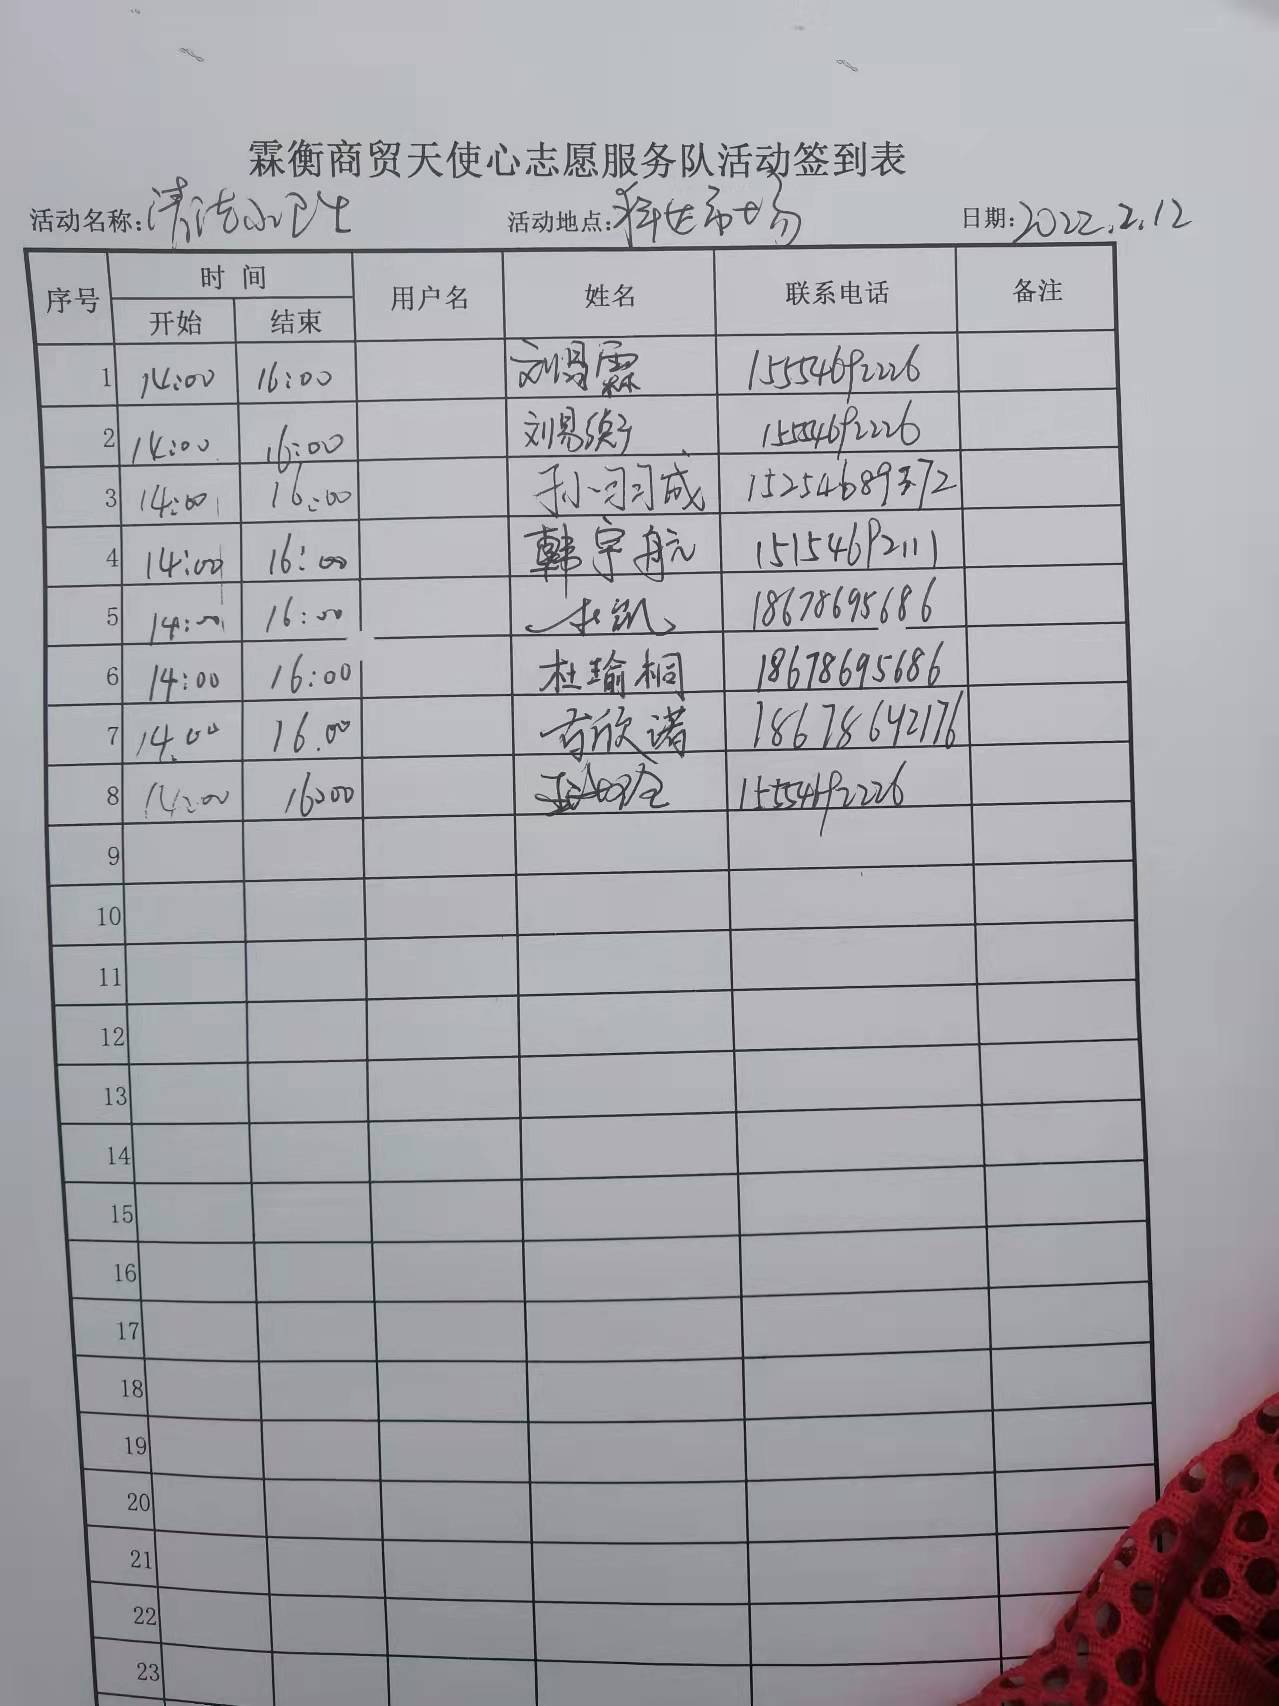 霖衡商贸天使心志愿服务队活动签到表
活动名称:清洁小卫生 活动地点:科达市场 日期:2022.2.12
序号 时间 用户名 姓名 联系电话 备注
开始 结束
1 14:00 16:00 刘易霖 15554692226
2 14:00 16:00 刘易 15554692226
3 14:00 16:00 孙羽成 15254689372
4 14:00 16:00 韩宇航 15154692111
5 14:00 16:00 18678695686
6 14:00 16:00 杜瑜桐 18678695686
7 14:00 16.00 欣诺 18678642176
8 14:00 16:00 15554692226
9
10
11
12
13
14
15
16
17
18
19
20
21
22
23